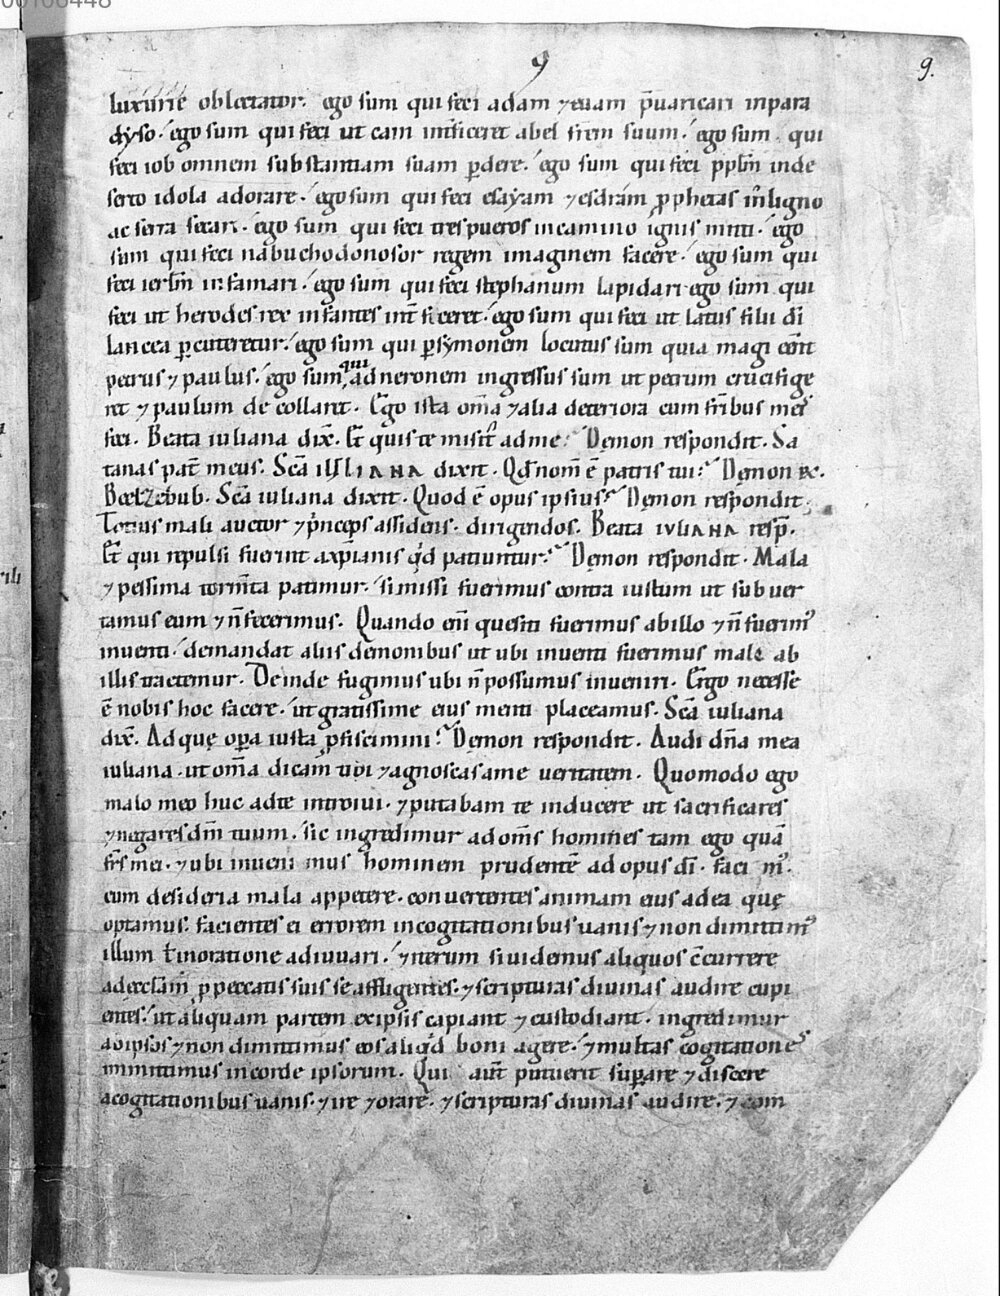 00106448
9
9.
luxurie oblectator. ego sum qui feci adam ⁊euam p̄uaricari inpara
dyso. ego sum qui feci ut cain int̄ficeret abel fr̄em suum. ego sum. qui
feci iob omnem substantiam suam ꝑdere. ego sum qui feci pp̄lm inde
serto idola adorare. ego sum qui feci esayam ⁊esdram ꝓphetas inligno
ac serra secari. ego sum qui feci tres pueros incamino ignis mitti. ego
sum qui feci nabuchodonosor regem imaginem facere. ego sum qui
feci ierl̄m infamari. ego sum qui feci stephanum lapidari ego sum qui
feci ut herodes rex infantes int̄ficeret. ego sum qui feci ut latus filii dī
lancea ꝑcuteretur. ego sum qui ꝑsymonem locutus sum quia magi eēnt
petrus ⁊ paulus. ego sum qui adneronem ingressus sum ut petrum crucifige
ret ⁊ paulum decollaret. Ego ista om̄a ⁊alia deteriora cum fr̄ibus meis
feci. Beata iuliana dix̄. Et quis te misit adme? Demon respondit. Sa
tanas pat̄ meus. Sc̄a IULIANA dixit. Qd̄ nom̄ ē patris tui? Demon ꝶ.
Beelzebub. Sc̄a iuliana dixit. Quod ē opus ipsius? Demon respondit.
Totius mali auctor ⁊ p̄nceps assidens. dirigendos. Beata IULIANA resp̄.
Et qui repulsi fuerint axp̄ianis qd̄ patiuntur? Demon respondit. Mala
⁊ pessima torm̄ta patimur. si missi fuerimus contra iustum ut subuer
tamus eum ⁊ n̄ fecerimus. Quando eni quesiti fuerimus abillo ⁊ n̄ fuerimꝰ
inuenti. demandat aliis demonibus ut ubi inuenti fuerimus male ab
illis tractemur. Deinde fugimus ubi n̄ possumus inueniri. Ergo necesse
ē nobis hoc facere. ut gratissime eius menti placeamus. Sc̄a iuliana
dix̄. Ad quę oꝑa iusta ꝓficiscimini? Demon respondit. Audi dn̄a mea
iuliana. ut om̄a dicam tibi ⁊agnoscas ame ueritatem. Quomodo ego
malo meo huc adte introiui. ⁊putabam te inducere ut sacrificares
⁊negares dm̄ tuum. sic ingredimur ad om̄s homines tam ego quā
fr̄s mei. ⁊ubi inueni mus hominem prudentē ad opus dī. faci mꝰ.
eum desideria mala appetere. conuertentes animam eius adea quę
optamus. facientes ei errorem incogitationibus uanis ⁊non dimittimꝰ
illum
adiuuari. ⁊iterum si uidemus aliquos c̄currere
adecl̄am ꝓpeccatis suis se affligentes. ⁊scripturas diuinas audire cupi
entes. ut aliquam partem exipsis capiant ⁊ custodiant. ingredimur
adipsos ⁊non dimittimus eos aliqd̄ boni agere. ⁊ multas cogitationes
inmittimus incorde ipsorum. Qui aut̄ potuerit suꝑare ⁊ discere
acogitationibus uanis. ⁊ire ⁊orare. ⁊scripturas diuinas audire. ⁊ com